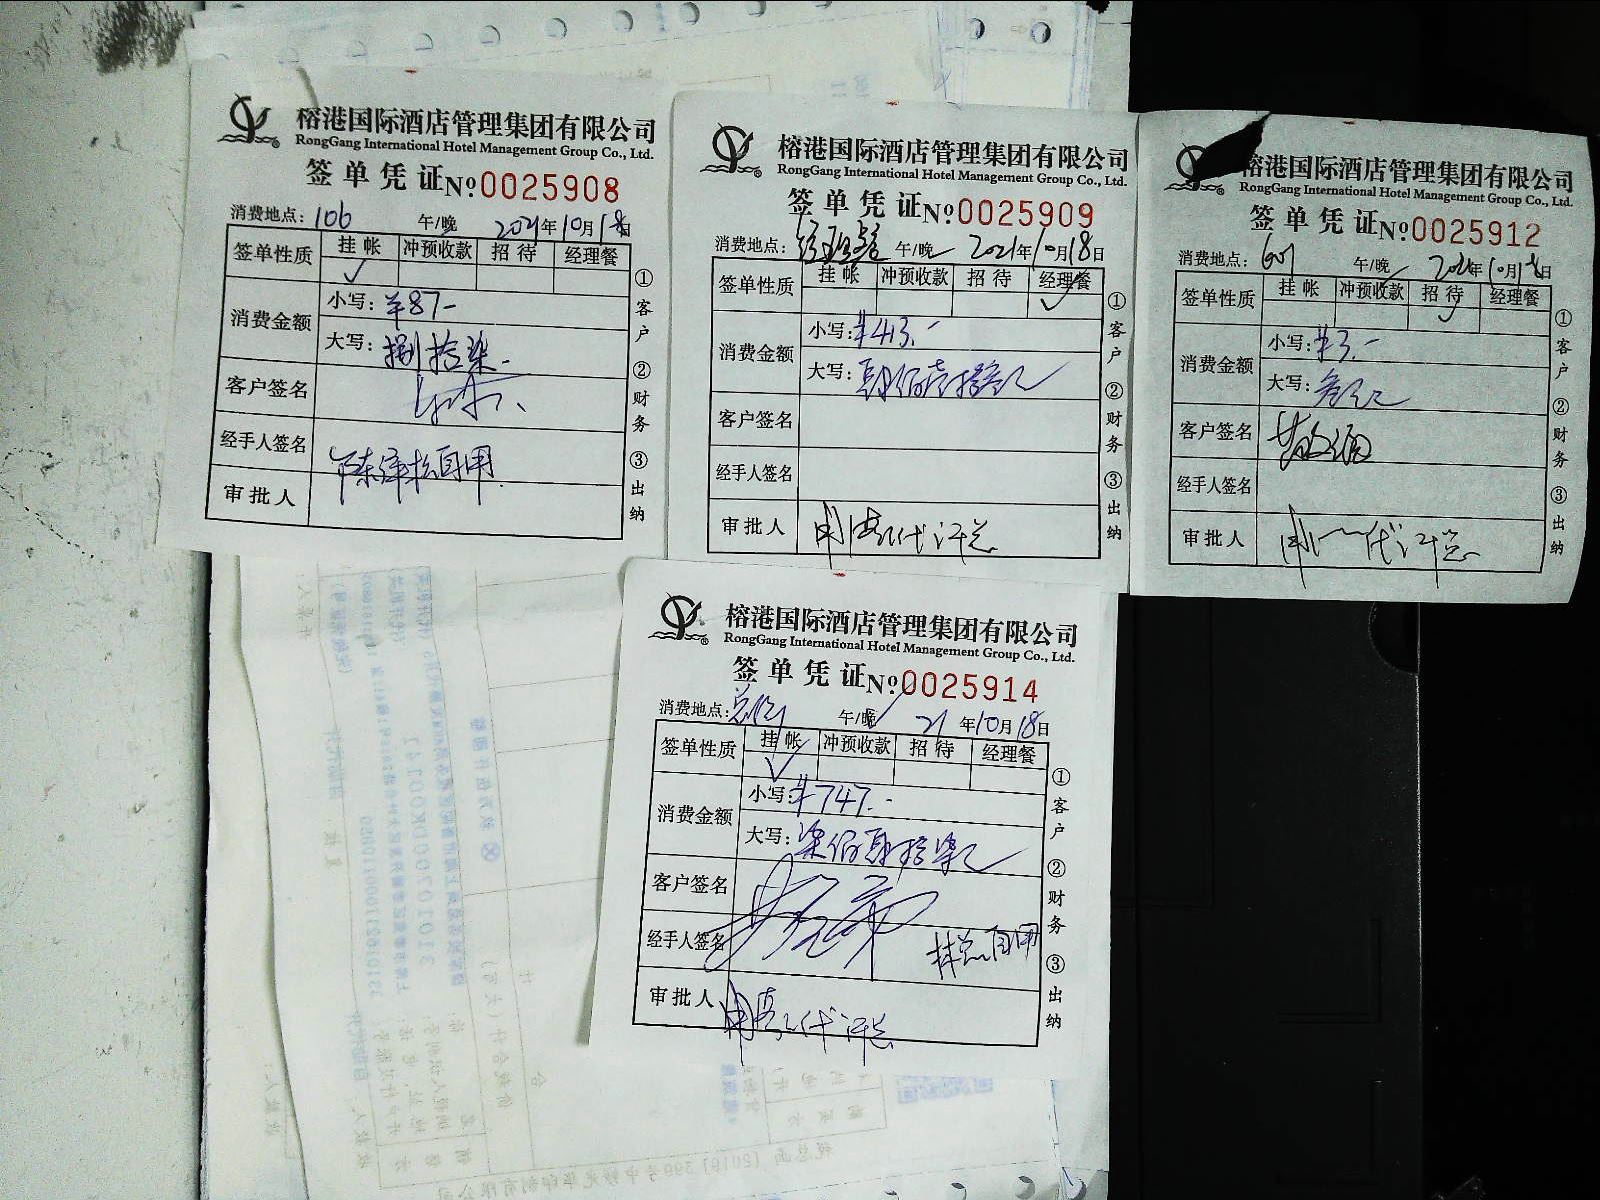 榕港国际酒店管理集团有限公司
RongGang International Hotel Management Group Co., Ltd.
签单凭证 №0025908
消费地点：106 午/晚 2021年10月18日
签单性质 挂帐 冲预收款 招待 经理餐
✓
消费金额 小写：¥87-
大写：捌拾柒.
客户签名
经手人签名 陈泽松自用
审批人
①客户 ②财务 ③出纳
榕港国际酒店管理集团有限公司
RongGang International Hotel Management Group Co., Ltd.
签单凭证 №0025909
消费地点：经理餐 午/晚 2021年10月18日
签单性质 挂帐 冲预收款 招待 经理餐
✓
消费金额 小写：¥413.-
大写：肆佰壹拾叁元
客户签名
经手人签名
审批人 代许总
①客户 ②财务 ③出纳
榕港国际酒店管理集团有限公司
RongGang International Hotel Management Group Co., Ltd.
签单凭证 №0025912
消费地点：601 午/晚 2021年10月18日
签单性质 挂帐 冲预收款 招待 经理餐
✓
消费金额 小写：¥3.-
大写：叁元
客户签名
经手人签名
审批人 代许总
①客户 ②财务 ③出纳
榕港国际酒店管理集团有限公司
RongGang International Hotel Management Group Co., Ltd.
签单凭证 №0025914
消费地点： 午/晚 21年10月18日
签单性质 挂帐 冲预收款 招待 经理餐
✓
消费金额 小写：¥747.-
大写：柒佰肆拾柒元
客户签名
经手人签名 林总自用
审批人 代许总
①客户 ②财务 ③出纳